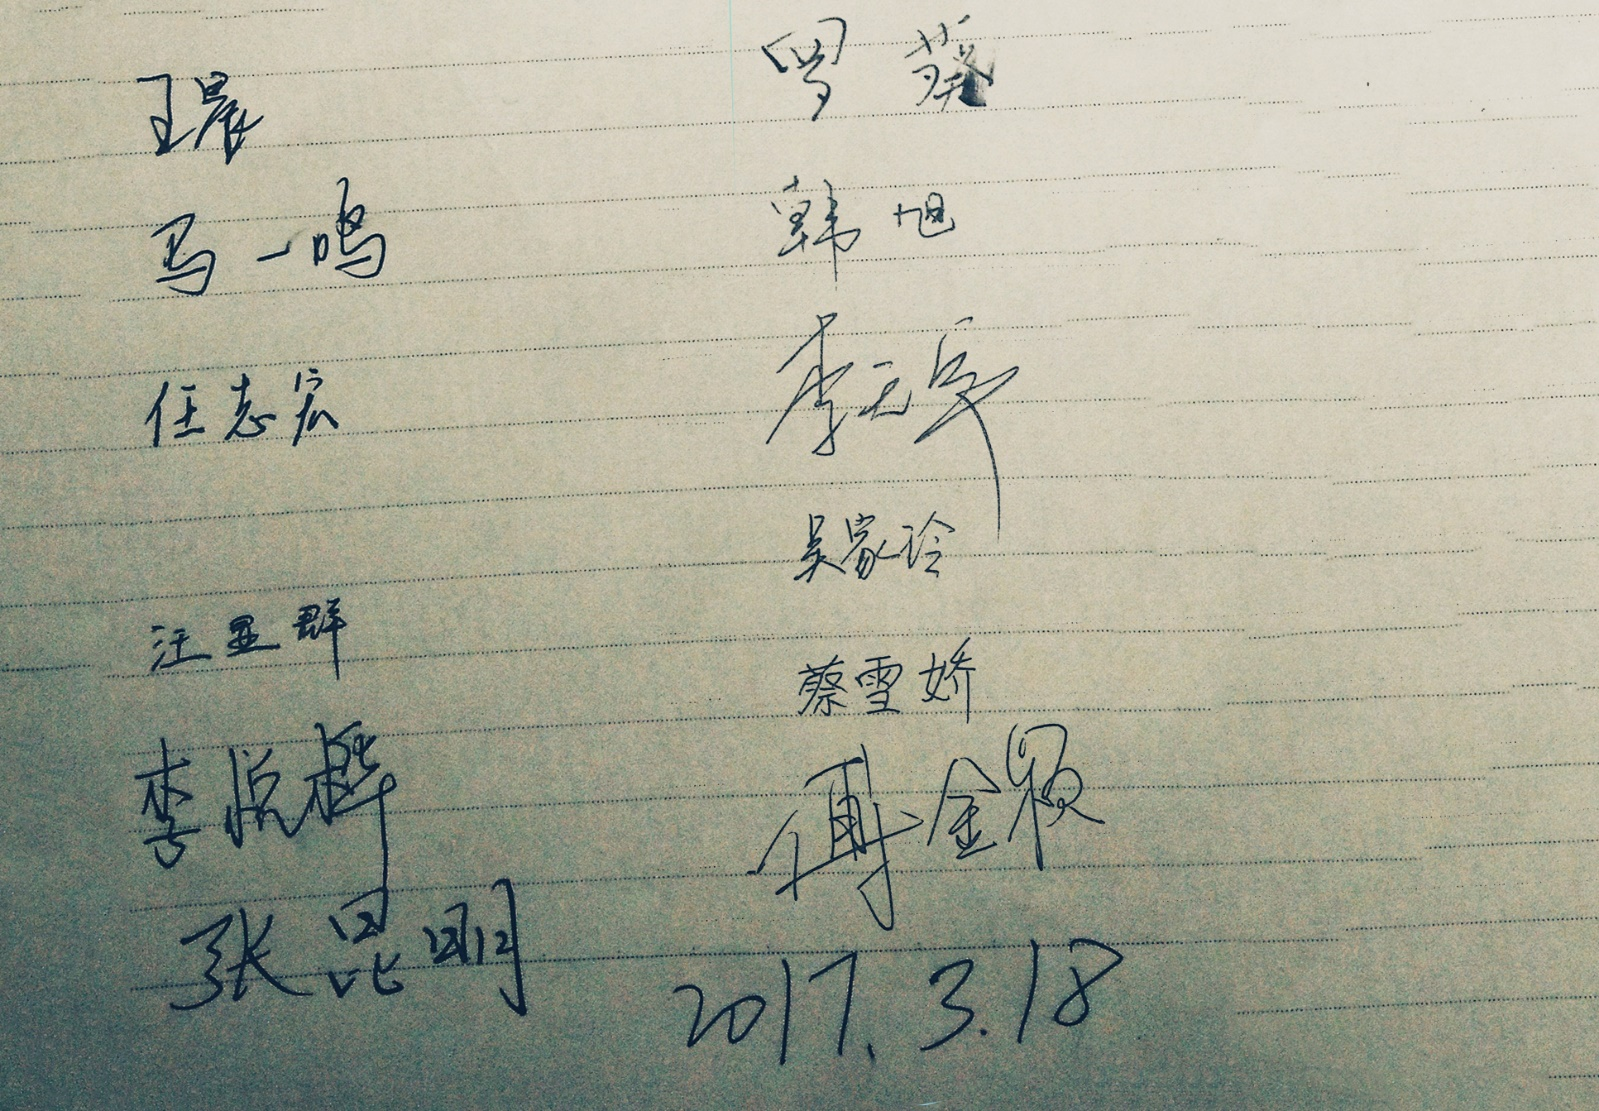 王晨
马一鸣
任志宏
汪显群
李悦桦
张昆明
韩旭
吴家玲
蔡雪娇
傅金颖
2017.3.18